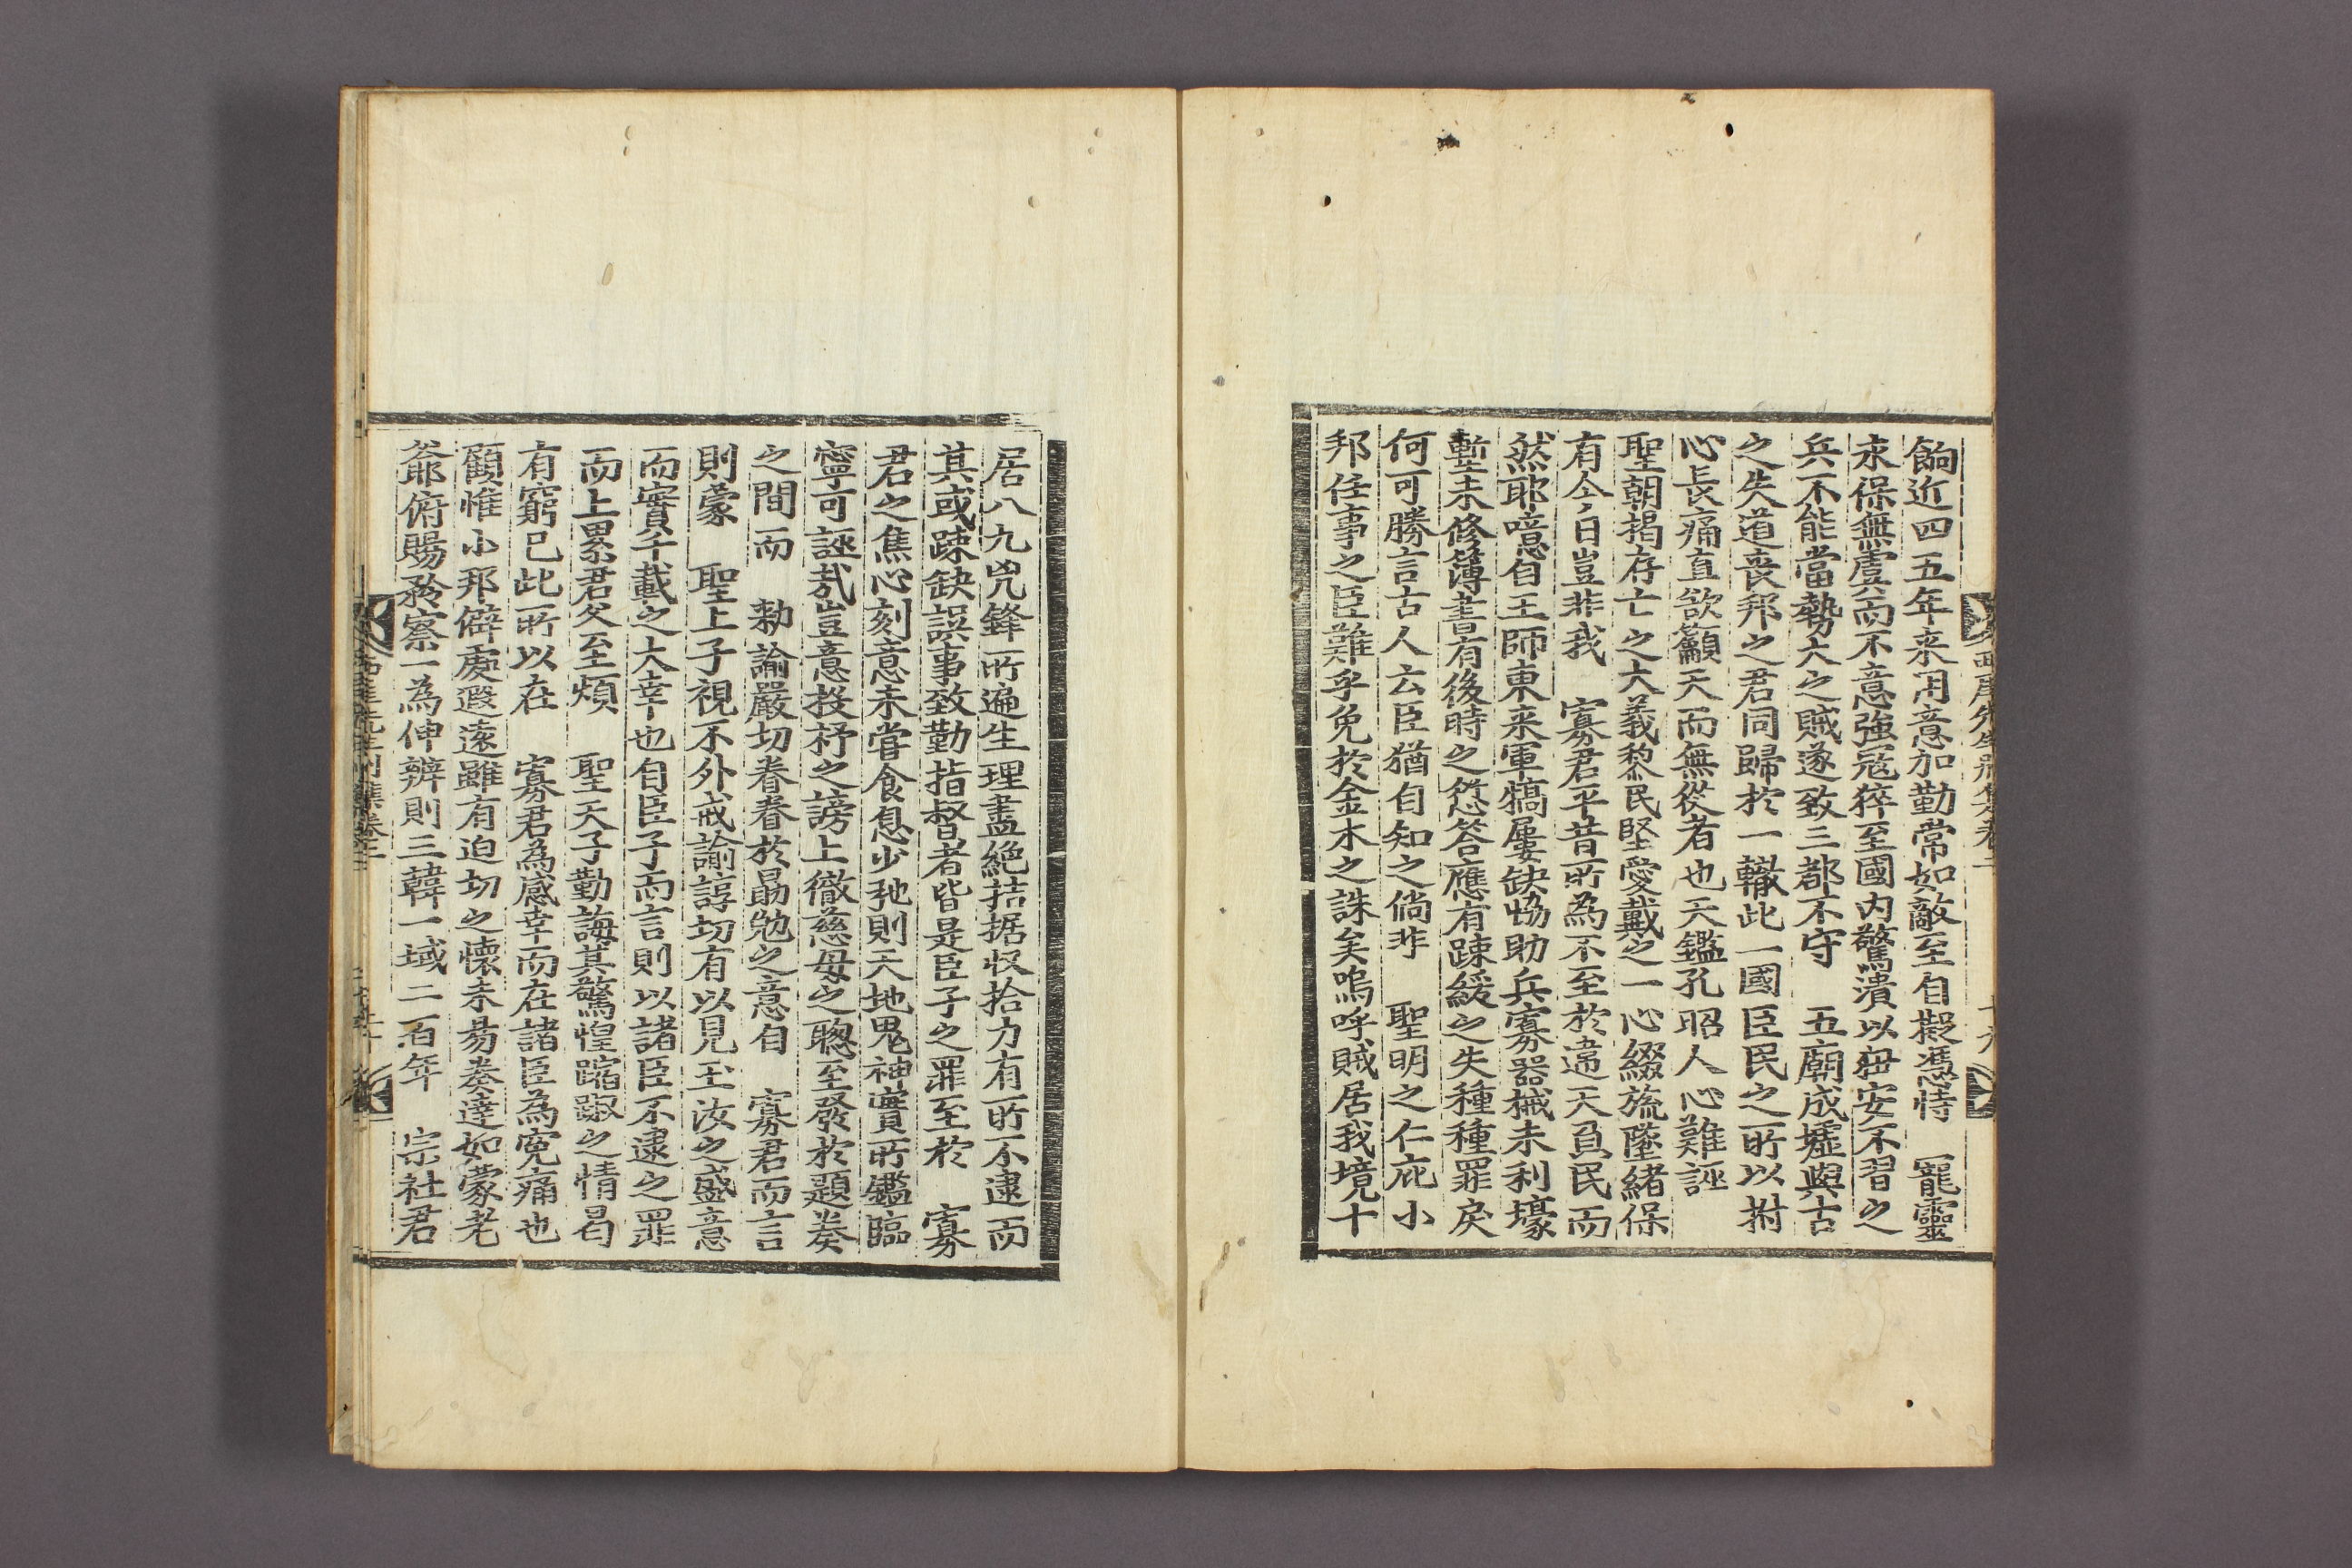 餉近四五年来用意加勤常如敵至自擬憑恃 寵靈
永保無虞而不意強寇猝至國内驚潰以狃安不習之
兵不能當勢大之賊遂致三都不守 五廟成墟與古
之失道喪邦之君同歸於一轍此一國臣民之所以拊
心長痛直欲籲天而無從者也天鑑孔昭人心難誣
聖朝揭存亡之大義黎民堅愛戴之一心綴旒墜緒保
有今日豈非我 寡君平昔所為不至於違天負民而
然耶噫自王師東来軍犒屢缺協助兵寡器械未利壕
塹未修簿書有後時之愆答應有踈緩之失種種罪戾
何可勝言古人云臣猶自知之倘非 聖明之仁庇小
邦任事之臣難乎免於金木之誅矣嗚呼賊居我境十
居八九兇鋒所遍生理盡絶拮据收拾力有所不逮而
其或踈缺誤事致勤指督者皆是臣子之罪至於 寡
君之焦心刻意未嘗食息少弛則天地鬼神實所鑑臨
寧可誣哉豈意投杼之謗上徹慈母之聰至發於題奏
之間而 勅諭嚴切眷眷於勗勉之意自 寡君而言
則蒙 聖上子視不外戒諭諄切有以見玉汝之盛意
而實千載之大幸也自臣子而言則以諸臣不逮之罪
而上累君父至煩 聖天子勤誨其驚惶踧踖之情曷
有窮已此所以在 寡君為感幸而在諸臣為寃痛也
顧惟小邦僻處遐遠雖有迫切之懷未易奏達如蒙老
爺俯賜矜察一為伸辨則三韓一域二百年 宗社君
西厓先生別集卷三